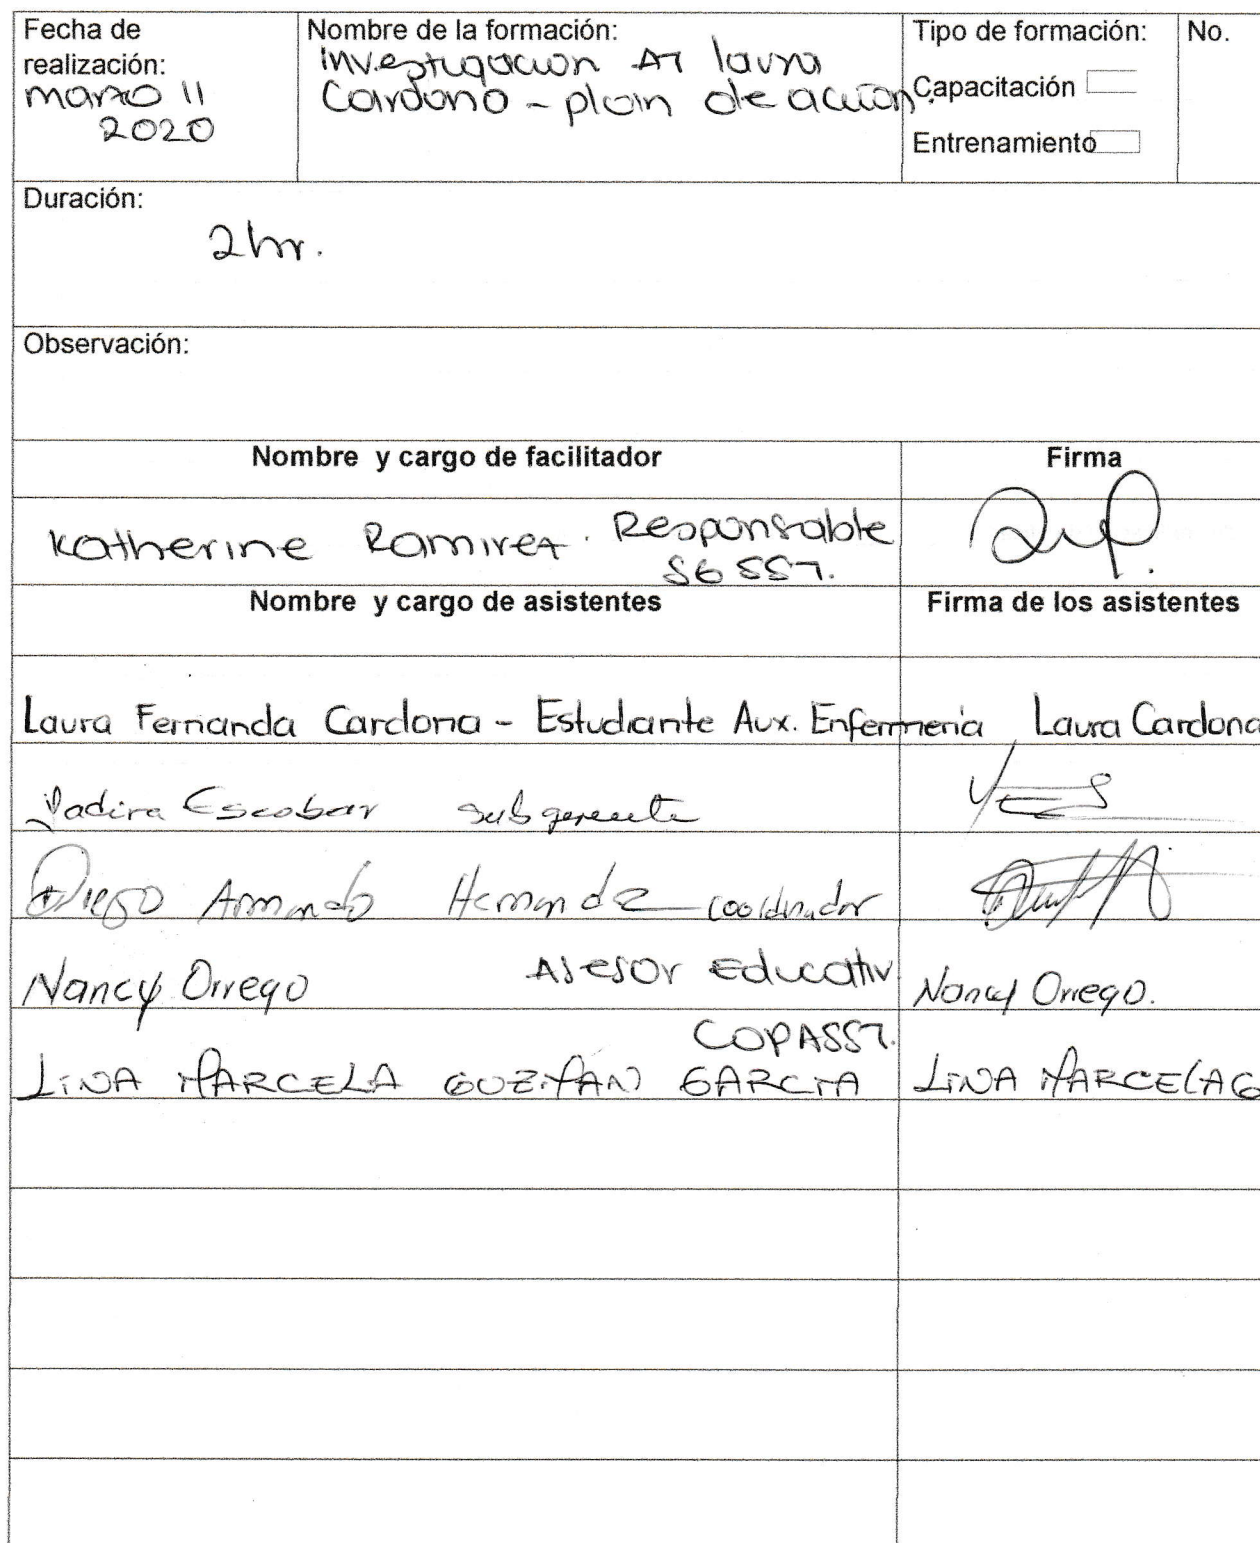 Fecha de
realización:
marzo 11
2020
Nombre de la formación:
Investigacion AT laura
Cardona - plan de accion.
Tipo de formación:
Capacitación
Entrenamiento
No.
Duración:
2hr.
Observación:
Nombre y cargo de facilitador
Firma
Katherine Ramirez. Responsable
SG SST.
Nombre y cargo de asistentes
Firma de los asistentes
Laura Fernanda Cardona - Estudiante Aux. Enfermeria Laura Cardona
Yadira Escobar subgerente
YES
Diego Armando Hernandez coordinador
Nancy Orrego Asesor Educativ
Nancy Orrego.
COPASST.
LINA MARCELA GUZMAN GARCIA
LINA MARCELA G